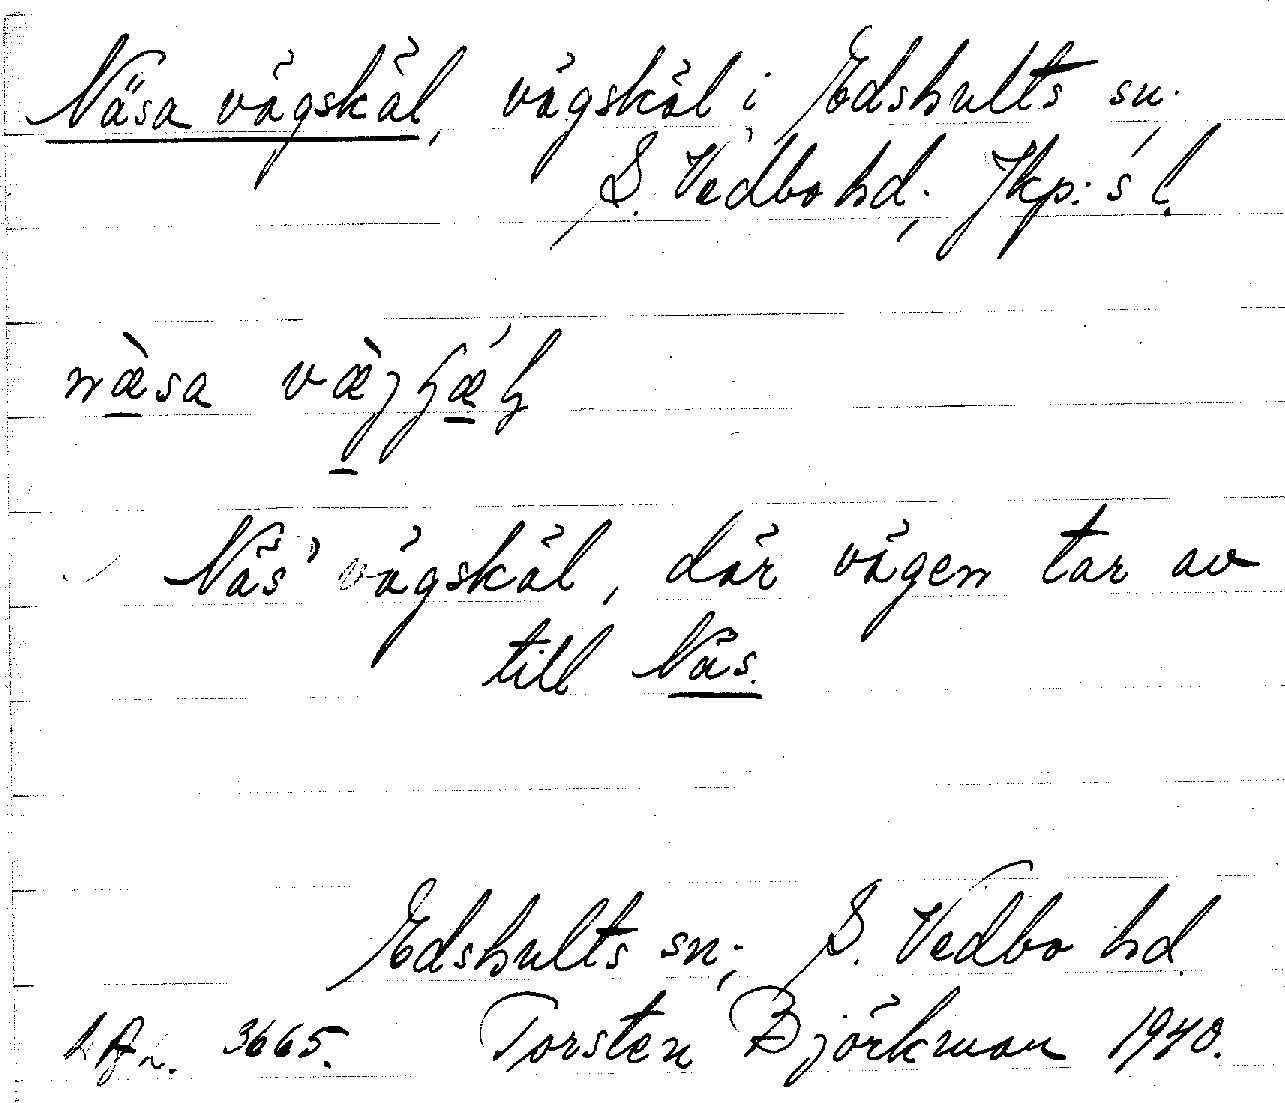 Näsa vägskäl, vägskäl i Edshults sn.
S. Vedbo hd; Jkp:s l.
Näs' vägskäl, där vägen tar av
till Näs.
Edshults sn; S. Vedbo hd.
3665. Torsten Björkman 1940.